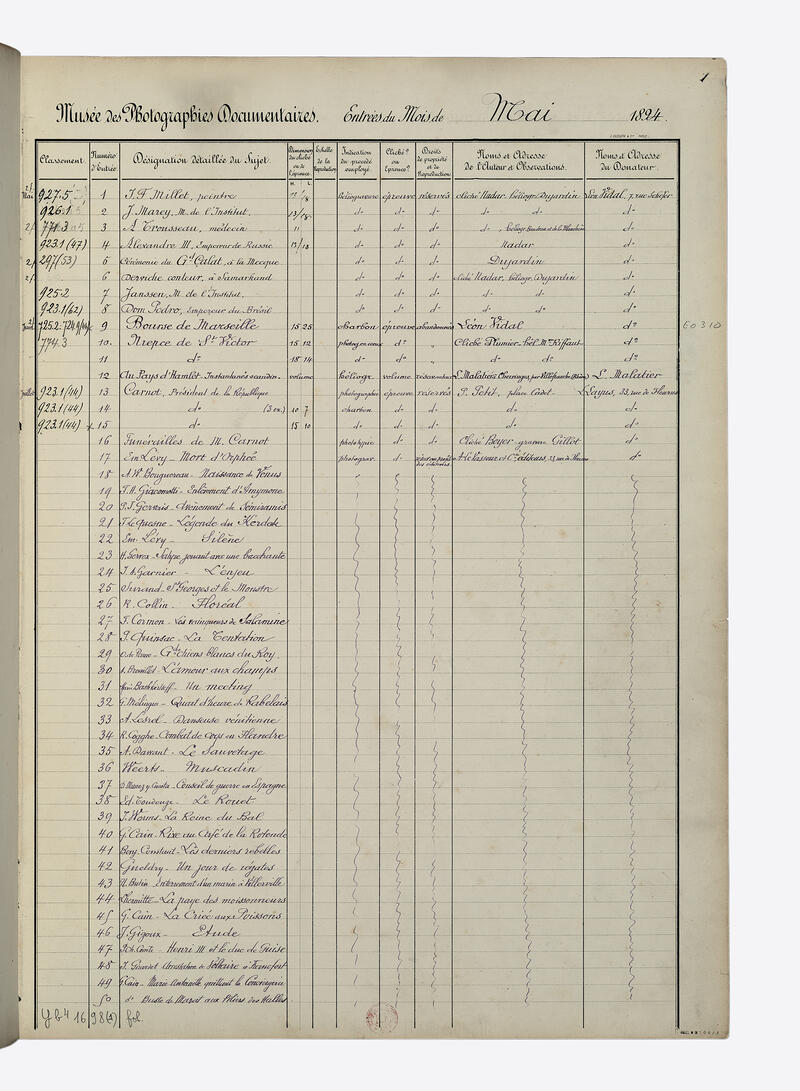 1
Musée des Photographies Documentaires. Entrées du Mois de Mai 1894.
Classement. Numéros d'entrée Désignation détaillée du Sujet. Dimensions du cliché ou de l'épreuve H. L. Echelle de la Reproduction Indication du procédé employé. Cliché? ou Epreuve? Droits de propriété et de Reproduction Noms et Adresse de l'Auteur et Observations. Noms et Adresse du Donateur.
Mai 927.5 1 J. F. Millet, peintre héliogravure épreuve réservés cliché Nadar, héliogr. Dujardin Léon Vidal, 7, rue Schéfer
926.1 2 J. Marey, M. de l'Institut, 13/18 do do do do do do do
771.3 3 A. Trousseau, médecin 11 do do do do do
923.1 (47) 4 Alexandre III, Empereur de Russie 13/18 do do do Nadar do
297 (53) 5 Cérémonie du Gd Galat, à la Mecque do do do Dujardin do
6 Derviche conteur, à Samarkand do do do cliché Nadar, héliogr. Dujardin do
925.2 7 Janssen, M. de l'Institut, do do do do do do
923.1 (62) 8 Dom Pedro, Empereur du Brésil do do do do do do
9 Bourse de Marseille 15 25 charbon épreuve abandonnés Léon Vidal do E0310
774.3 10 Niepce de St Victor 15 12 do " Cliché Plumier. hél. Mr. Riffaut do
11 do 18 14 do do " do do do do
12 Au Pays d'Hamlet. Instantanés scandin. volume héliogr. volume L. Malatier
Juillet 923.1 (44) 13 Carnot, Président de la République photographie épreuve réservés P. Petit, place Cadet Layus, 33, rue de Fleurus
923.1 (44) 14 do (3 ex.) 10 7 charbon do do do do
923.1 (44) x 15 do 15 10 do do do do do
16 Funérailles de M. Carnot phototypie do do Cliché Boyer, gravure Gillot do
17 Em. Lévy - Mort d'Orphée photograv. do A. Le Vasseur et Cie éditeurs, 33 rue de Fleurus do
18 A. W. Bouguereau - Naissance de Vénus
19 F. H. Giacomotti - Enlèvement d'Amymone
20 P. J. Gervais - Avènement de Sémiramis
21 F. Le Quesne - Légende du Kerdek
22 Em. Lévy - Silène
23 H. Gervex - Satyre jouant avec une bacchante
24 J. A. Garnier - L'enjeu
25 Surand - St Georges et le Monstre
26 R. Collin - Floréal
27 F. Cormon - Les vainqueurs de Salamine
28 P. Quinsac - La Tentation
29 O. de Penne - Gds chiens blancs du Roy
30 A. Brouillet - L'amour aux champs
31 Marie Bashkirtseff - Un meeting
32 G. Mélingue - Quart d'heure de Rabelais
33 A. Lesrel - Danseuse vénitienne
34 R. Cogghe - Combat de coqs en Flandre
35 A. Dawant - Le Sauvetage
36 Weerts - Muscadin
37 Conseil de guerre en Espagne
38 Ed. Toudouze - Le Rouet
39 J. Worms - La Reine du Bal
40 G. Cain - Rixe au Café de la Rotonde
41 Benj. Constant - Les derniers rebelles
42 Gueldry - Un jour de régates
43 U. Butin - Enterrement d'un marin à Villerville
44 Lhermitte - La paye des moissonneurs
45 G. Cain - La Criée aux Poissons
46 J. Gigoux - Etude
47 P. Ch. Comte - Henri III et le duc de Guise
48 Arrestation de Voltaire à Francfort
49 G. Cain - Marie Antoinette quittant la Conciergerie
50 do Buste de Marat aux Piliers des Halles
Yb4 1698 (1) fol.